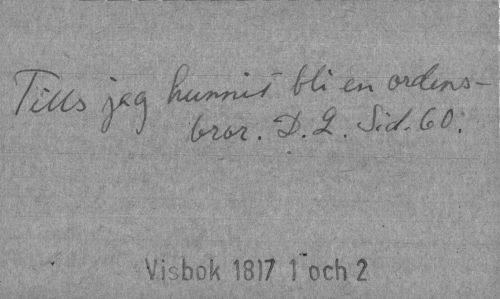 Tills jag hunnit bli en ordens-
bror. D. L. Sid. 60.
Visbok 1817 1 och 2